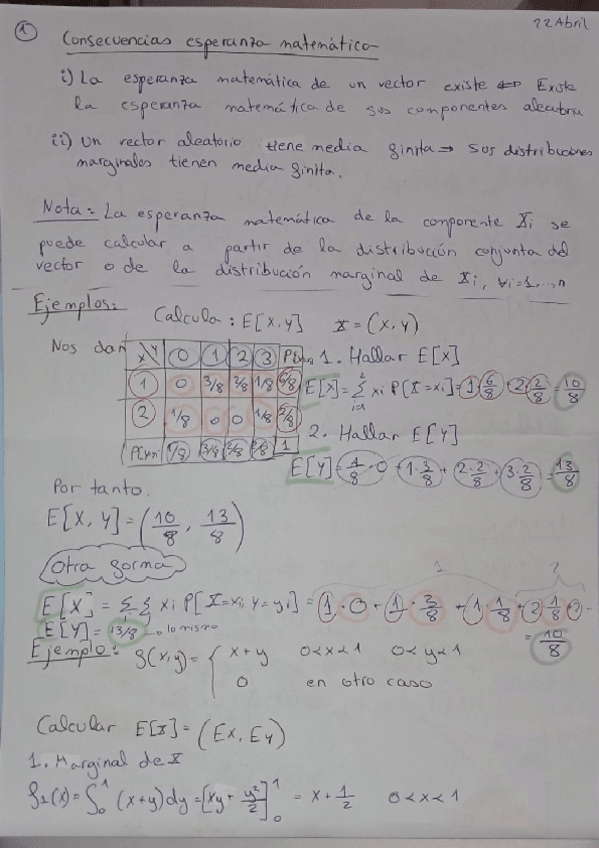 ① 22 Abril
Consecuencias esperanza matemática
i) La esperanza matemática de un vector existe ⟺ Existe
la esperanza matemática de sus componentes
ii) Un vector aleatorio tiene media finita ⇒ Sus distribuciones
marginales tienen media finita.
Nota: La esperanza matemática de la componente Xi se
puede calcular a partir de la distribución conjunta del
vector o de la distribución marginal de Xi, ∀i=1,...,n
Ejemplos: Calcula: E[X,Y] X=(X,Y)
Nos dan
X\Y 0 1 2 3
1 0 3/8 2/8 1/8 6/8
2 1/8 0 0 1/8 2/8
1/8 3/8 2/8 2/8 1
1. Hallar E[X]
E[X]=∑ xi P[X=xi]=1·6/8+2·2/8=10/8
2. Hallar E[Y]
E[Y]=1/8·0+1·3/8+2·2/8+3·2/8=13/8
Por tanto.
E[X,Y]=(10/8, 13/8)
Otra forma
1 2
E[X]=∑∑ xi P[X=xi, Y=yi]=1·0+1·3/8+
+1·1/8+2·1/8+
E[Y]=13/8 → lo mismo =10/8
Ejemplo: f(x,y)={ x+y 0<x<1 0<y<1
0 en otro caso
Calcular E[X]=(Ex, Ey)
1. Marginal de X
f1(x)=∫₀¹(x+y)dy=[xy+y²/2]₀¹=x+1/2 0<x<1